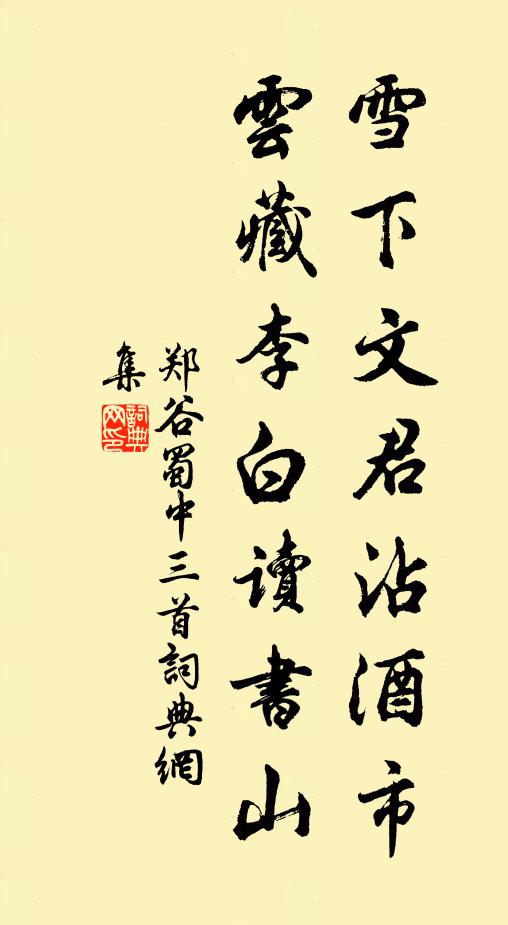 雪下文君沽酒市
雲藏李白讀書山
郑谷蜀中三首詞典網
集
詞典
网印